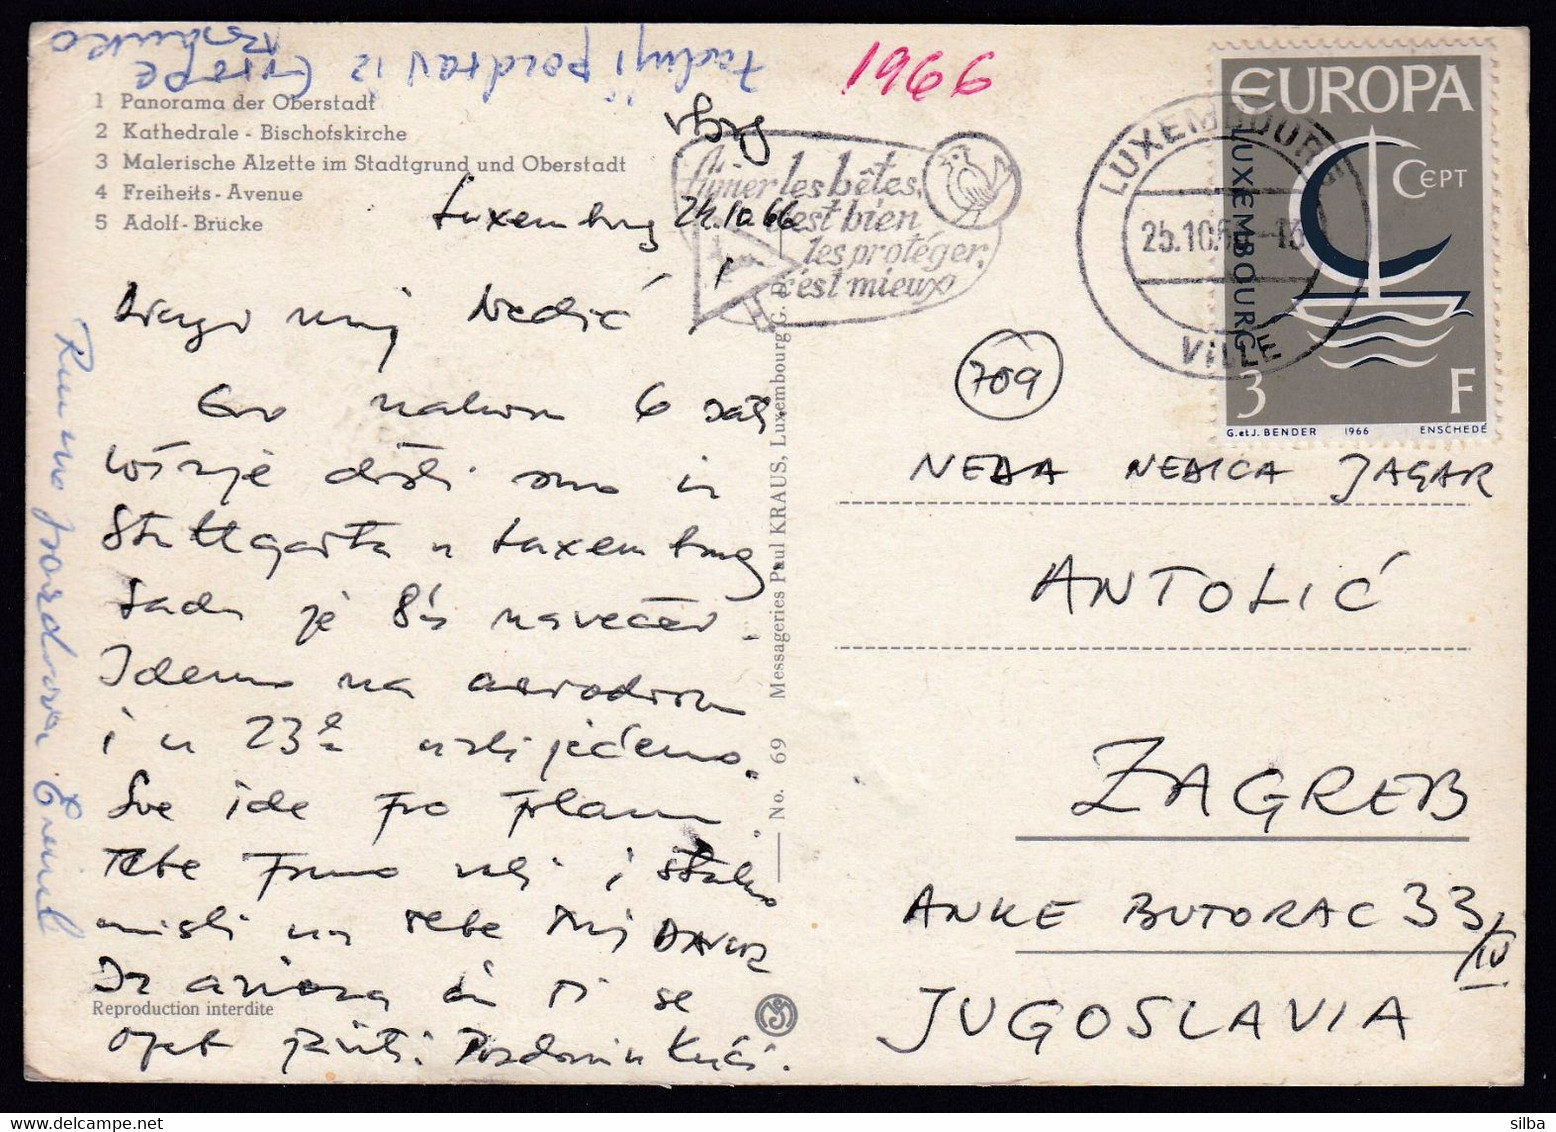 Zadnji pozdrav iz
Evrope
Branko
1966
1 Panorama der Oberstadt
2 Kathedrale - Bischofskirche
3 Malerische Alzette im Stadtgrund und Oberstadt
4 Freiheits - Avenue
5 Adolf - Brücke
Luxemburg 24.10.66
Dragi moj Nedić!
Evo nakon 6 sati
vožnje došli smo iz
Stuttgarta u Luxemburg
Sada je 8h navečer.
Idemo na aerodrom
i u 23h uzlijećemo.
Sve ide po planu.
Tebe puno voli i stalno
misli na tebe tvoj DAVOR
Iz aviona ću ti se
opet javiti. Pozdravi u kući.
Puno pozdrava Emil
Reproduction interdite
No. 69 Messageries Paul KRAUS, Luxembourg G. D.
Aimer les bêtes,
c'est bien
les protéger,
c'est mieux
LUXEMBOURG
25.10.66-13
VILLE
EUROPA
CEPT
LUXEMBOURG
3 F
G. et J. BENDER 1966 ENSCHEDÉ
709
NEDA NEDICA JAGAR
ANTOLIĆ
ZAGREB
ANKE BUTORAC 33/IV
JUGOSLAVIA